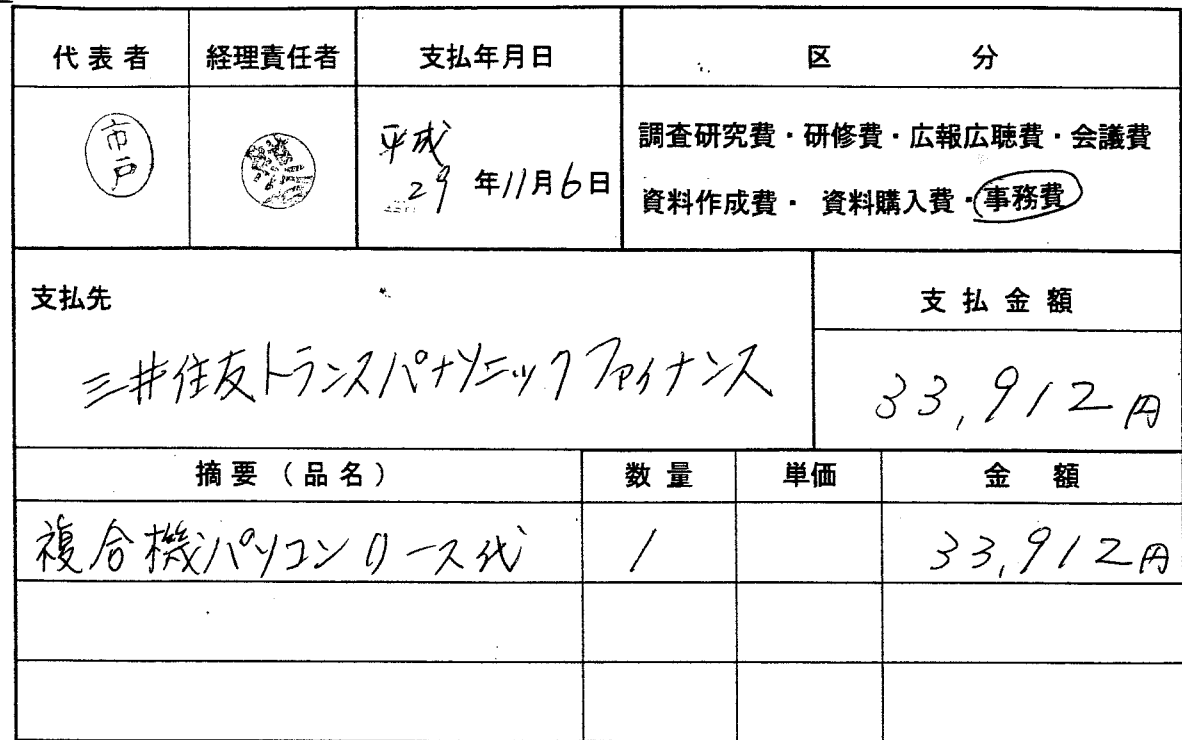 代表者 経理責任者 支払年月日 区分
市戸 平成
29年11月6日
調査研究費・研修費・広報広聴費・会議費
資料作成費・資料購入費・事務費
支払先 支払金額
三井住友トランスパナソニックファイナンス 33,912円
摘要(品名) 数量 単価 金額
複合機パソコンリース代 1 33,912円